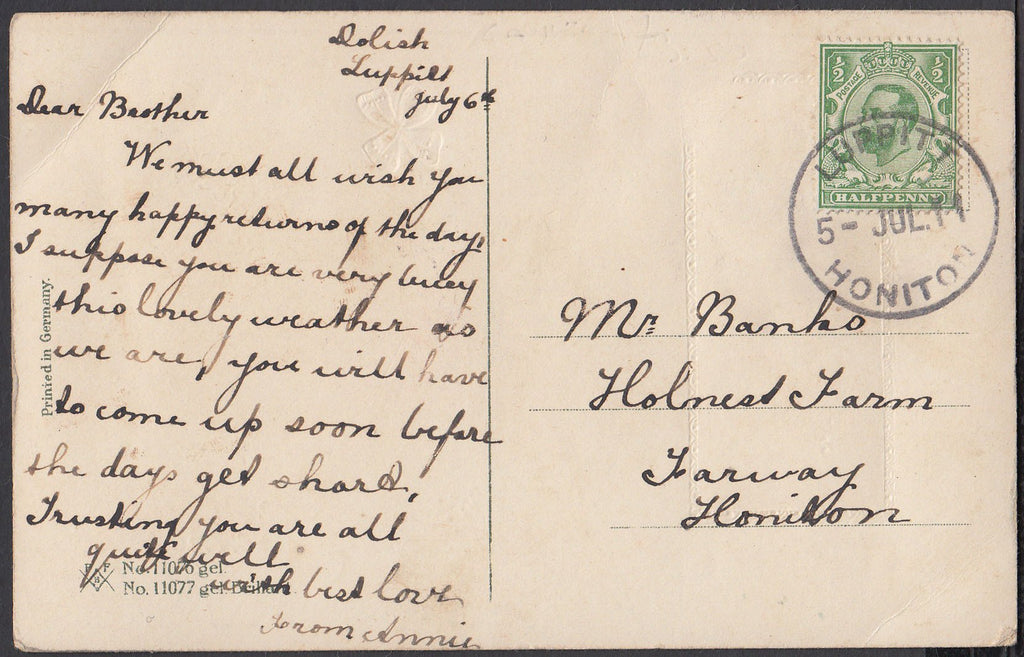 Dolish
Luppitt
July 6th
Dear Brother
We must all wish you
many happy returns of the day,
I suppose you are very busy
this lovely weather as
we are, you will have
to come up soon before
the days get short,
Trusting you are all
quite well
with best love
From Annie
Printed in Germany.
No. 11076 gel.
No. 11077 gel.
½ ½
POSTAGE REVENUE
HALFPENNY
LUPPITT
5 - JUL.11
HONITON
Mr. Banks
Holnest Farm
Farway
Honiton